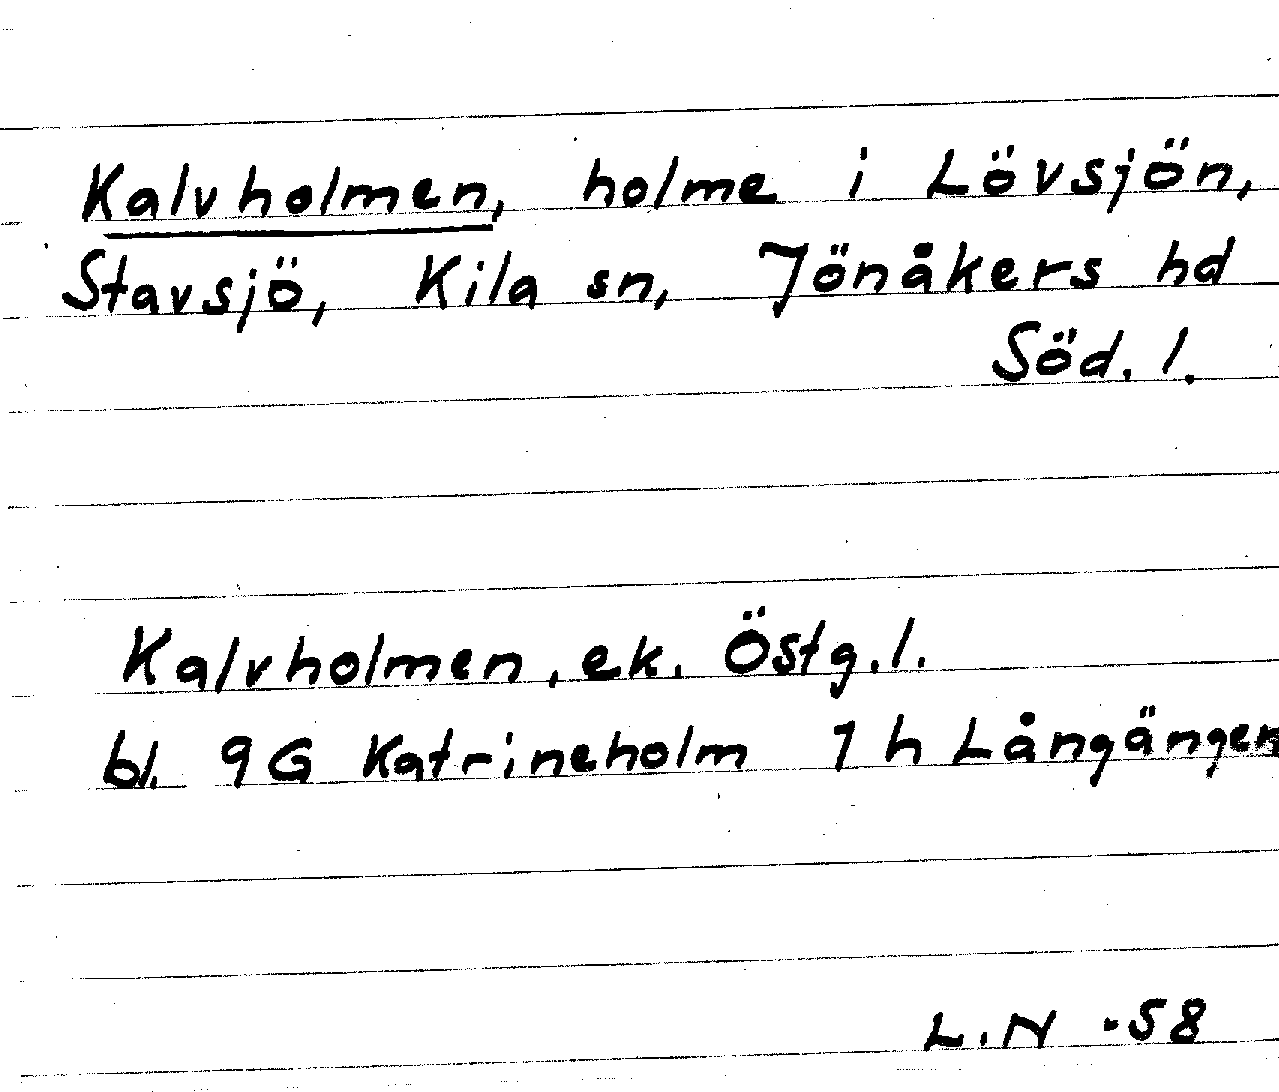 Kalvholmen, holme i Lövsjön,
Stavsjö, Kila sn, Jönåkers hd
Söd. l.
Kalvholmen, ek. Östg.l.
bl. 9G Katrineholm 1h Långängen
L.N -58